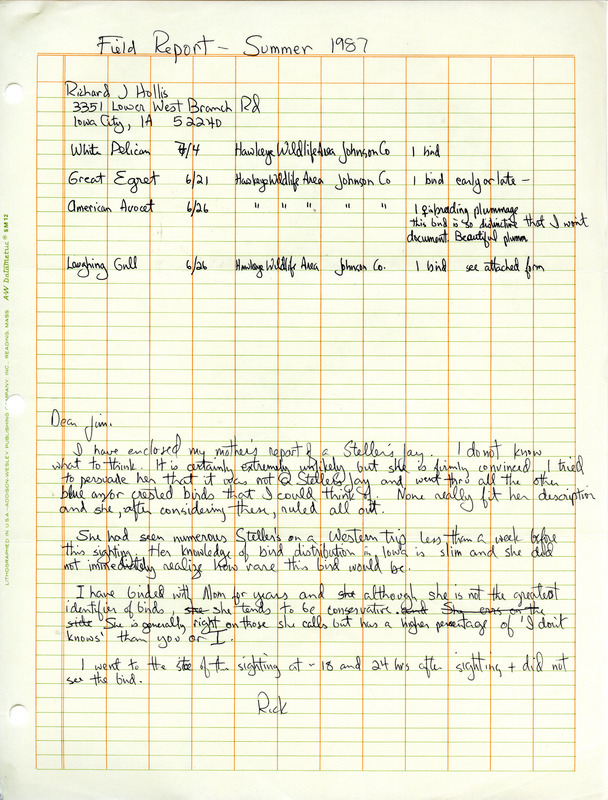 Field Report - Summer 1987
Richard J Hollis
3351 Lower West Branch Rd
Iowa City, IA 52240
White Pelican 7/4 Hawkeye Wildlife Area Johnson Co 1 bird
Great Egret 6/21 Hawkeye Wildlife Area Johnson Co 1 bird early or late -
American Avocet 6/26 " " " " " 1 ♀ plummage
this bird is so distinctive that I won't
document. Beautiful
Laughing Gull 6/26 Hawkeye Wildlife Area Johnson Co. 1 bird see attached form
Dear Jim.
I have enclosed my mother's report of a Steller's Jay. I do not know
what to think. It is certainly extremely unlikely but she is firmly convinced. I tried
to persuade her that it was not a Steller's Jay and went thru all the other
blue and/or crested birds that I could think of. None really fit her description
and she, after considering these, ruled all out.
She had seen numerous Steller's on a Western trip less than a week before
this sighting. Her knowledge of bird distribution in Iowa is slim and she did
not immediately realize how rare this bird would be.
I have birded with Mom for years and she although she is not the greatest
identifier of birds, she she tends to be conservative. and She errs on the
side She is generally right on those she calls but has a higher percentage of 'I don't
knows' than you or I.
I went to the site of the sighting at ~ 18 and 24 hrs after sighting + did not
see the bird.
Rick
LITHOGRAPHED IN U.S.A. - ADDISON-WESLEY PUBLISHING COMPANY, INC., READING, MASS. AW DATAMETRIC® SM 12